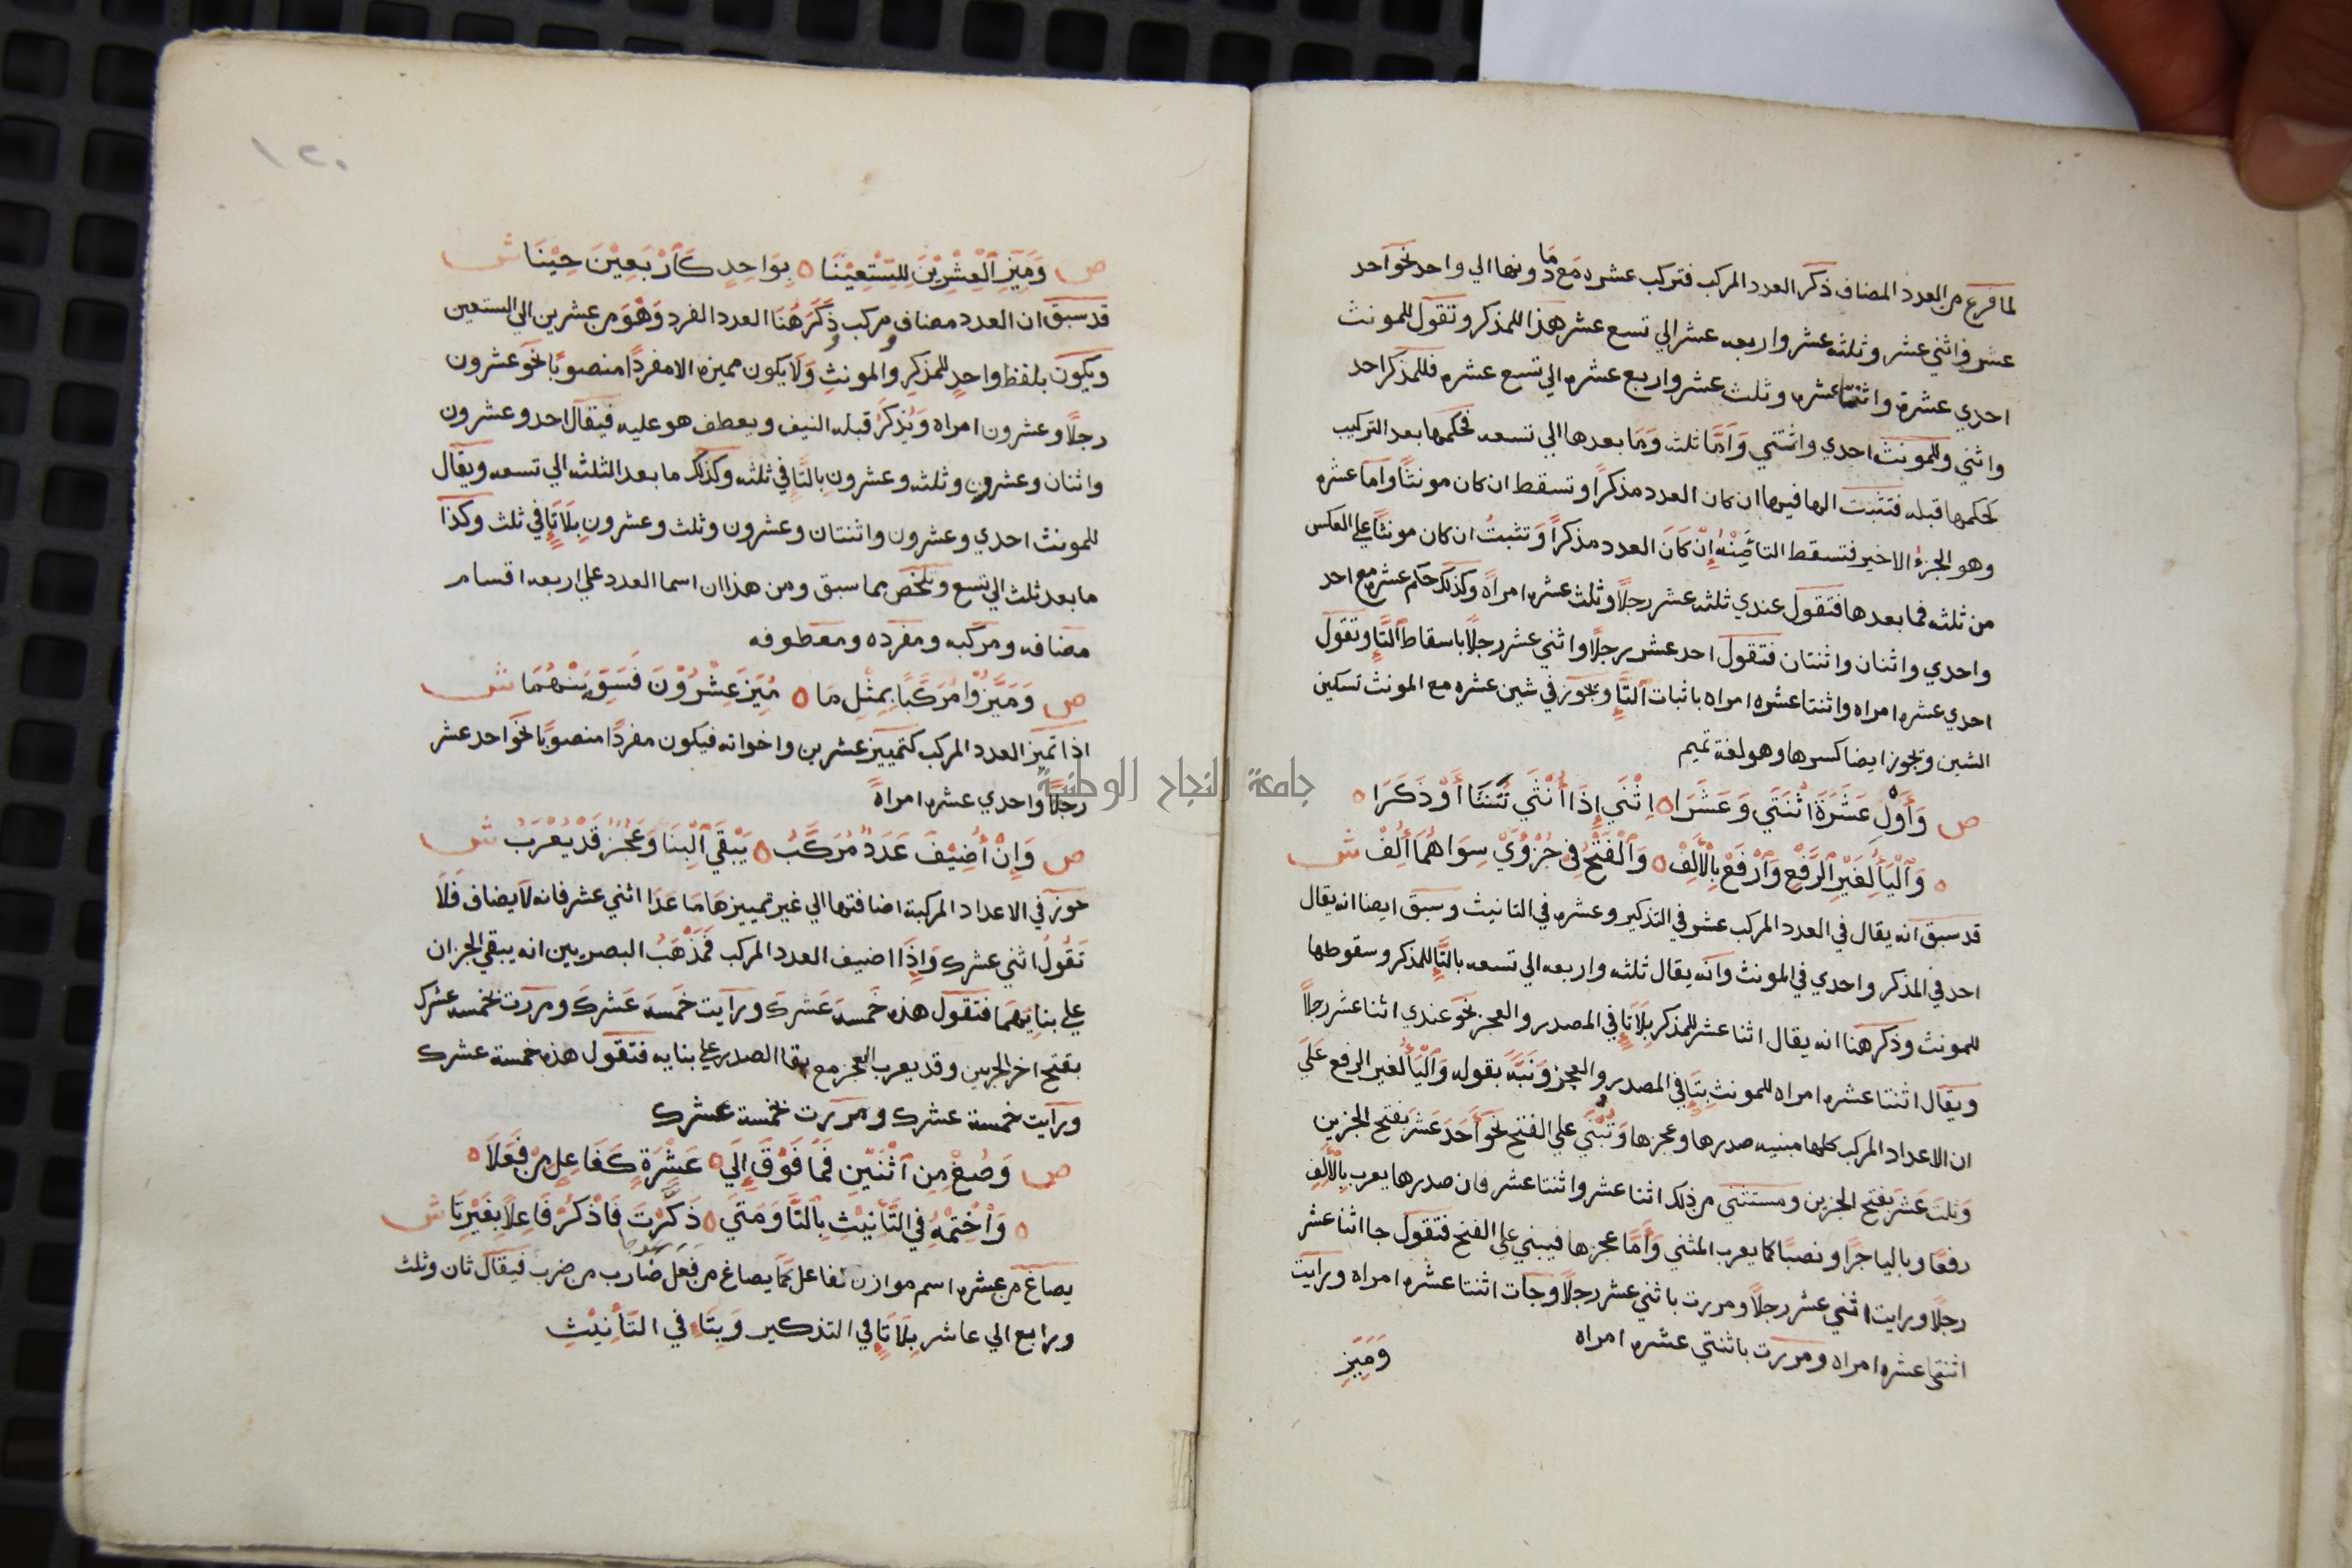 لما فرغ من العدد المضاف ذكر العدد المركب فتركب عشره مع مَا دونها الي واحد نحو احد
عشر واثني عشر وثلثه عشر واربعه عشر الي تسع عشر هذا للمذكر وتقول للمونث
احدي عشرة واثنتا عشره وثلث عشر واربع عشره الي تسع عشره فللمذكر احد
واثني وللمونث احدي واثنتي وَاَمَّا ثلثه وَمَا بعدها الي تسعه فحكمها بعد التركيب
كحكمها قبله فتثبت الها فيها ان كان العدد مذكرًا وتسقط ان كان مونثًا واما عشره
وهو الجزءُ الاخير فتسقط التا مِنْهُ إِنْ كَانَ العدد مذكرًا وَتثبتُ ان كان مونثًا علي العكس
من ثلثه فما بعدها فتقول عندي ثلثه عشر رجلًا وثلث عشره امراةً وكذلك حكم عشره مع احد
واحدي واثنان واثنتان فتقول احد عشر رجلًا واثني عشر رجلًا باسقاط التَّاءِ وتقول
احدي عشره امراه واثنتا عشره امراه باثبات التَّاءِ ويجوز في شين عشره مع المونث تسكين
الشين وتجوز ايضا كسرها وهو لغة تميم
ص وَأَوْلِ عَشْرَةَ اثْنَتَي وَعَشَرَا ٥ اِثْنَي إِذَا أُنْثَي تَشَا أَوْ ذَكَرَا ٥
٥ وَاَلْيَا لِغَيْرِ اَلرَّفْعِ وَاَرْفَعْ بِالْأَلِفْ ٥ وَاَلْفَتْحُ فِي جُزْؤَيْ سِوَاهُمَا أُلِفْ ش
قد سبق انه يقال في العدد المركب عشر في التذكير وعشره في التانيث وسبق ايضا انه يقال
احد في المذكر واحدي في المونث وانه يقال ثلثه واربعه الي تسعه بالتَّاءِ للمذكر وسقوطها
للمونث وذكر هنا انه يقال اثنا عشر للمذكر بِلَا تَاءٍ في المصدر والعجز نحو عندي اثنا عشر رجلًا
ويقال اثنتا عشره امراه للمونث بِتَاءٍ في المصدر والعجز وَنَبَّهَ بقوله وَاَلْيَا لغير الرفع عَلَي
ان الاعداد المركب كلها مبنيه صدرها وعجزها وَتُبْنَي علي الفتح نحو أَحَدَ عَشَرَ بفتح الجزين
وَثلثَ عَشَرَ بفتح الجزين ومستثني من ذلك اثنا عشر واثنتا عشر فان صدرها يعرب بِالْأَلِفِ
رفعًا وباليا جرًا ونصبًا كما يعرب المثني وَأَمَّا عجزها فيبني علي الفتح فتقول جا اثنا عشر
رجلًا ورايت اثني عشر رجلًا ومررت باثني عشر رجلًا وجات اثنتا عشره امراه ورايت
اثنتي عشره امراه ومررت باثنتي عشره امراه
وَمَيِّزِ
١٢٠
ص وَمَيِّزِ اَلْعِشْرِيْنَ لِلتِّسْعِيْنَا ٥ بِوَاحِدٍ كَأَرْبَعِيْنَ حِيْنَا ش
قد سبق ان العدد مضاف ومركب وذَكَرَ هُنَا العدد المفرد وَهْوَ من عشرين الي التسعين
ويكون بلفظ واحدٍ للمذكرِ والمونثِ وَلَا يكون مميزه الا مفردًا منصوبًا نحو عشرون
رجلًا وعشرون امراه وَيُذكرُ قبله النيف ويعطف هو عليه فيقال احد وعشرون
واثنان وعشرون وثلثه وعشرون بالتَّاءِ في ثلثه وكذلك ما بعد الثلثه الي تسعه ويقال
للمونث احدي وعشرون واثنتان وعشرون وثلث وعشرون بِلَا تَاءٍ في ثلث وكذا
ما بعد ثلث الي تسع وتلخص مما سبق ومن هذا ان اسما العدد علي اربعه اقسام
مضافه ومركبه ومفرده ومعطوفه
ص وَمَيَّزُوْا مُرَكَّبًا بِمِثْلِ مَا ٥ مُيِّزَ عِشْرُوْنَ فَسَوِّيَنْهُمَا ش
اذا تميز العدد المركب كتمييز عشرين واخواته فيكون مفردًا منصوبًا نحو احد عشر
رجلًا واحدي عشره امراةً
ص وَإِنْ أُضِيْفَ عَدَدٌ مُرَكَّبُ ٥ يَبْقَي اَلْبِنَا وَعَجُزٌ قَدْ يُعْرَبُ ش
جوز في الاعداد المركبة اضافتها الي غير تمييزها مَا عَدَا اثني عشر فانه لَا يضاف فَلَا
تَقُولُ اثني عشرك وَإِذَا اضيف العدد المركب فَمَذْهَبُ البصريين انه يبقي الجزان
علي بنايهمَا فتقول هذه خَمسةَ عَشَرَكَ ورايت خمَسةَ عَشَرَكَ ومررت بخمسه عشرك
بفتح اخر الجزين وقد يعرب العجز مع بقا الصدر علي بنايه فتقول هذه خمسة عشرك
ورايت خمسة عشرك ومررت بخمسة عشرك
ص وَصُغْ مِنِ اَثْنَيْنِ فَمَا فَوْقَ إِلَي ٥ عَشْرَةٍ كَفَاعِلٍ مِنْ فَعَلَا ٥
٥ وَاَخْتِمْهُ فِي التَّأْنِيْثِ بِالتَّا وَمَتَي ٥ ذَكَّرْتَ فَاذْكُرْ فَاعِلًا بِغَيْرِ تَا ش
يصاغ من عشره اسم موازن لفاعل كَمَا يصاغ من فَعَلَ ضارب من ضرب فيقال ثان وثلث
ورابع الي عاشر بِلَا تَاءٍ في التذكير وَبِتَاءٍ في التَّأْنِيْثِ
جامعة النجاح الوطنية